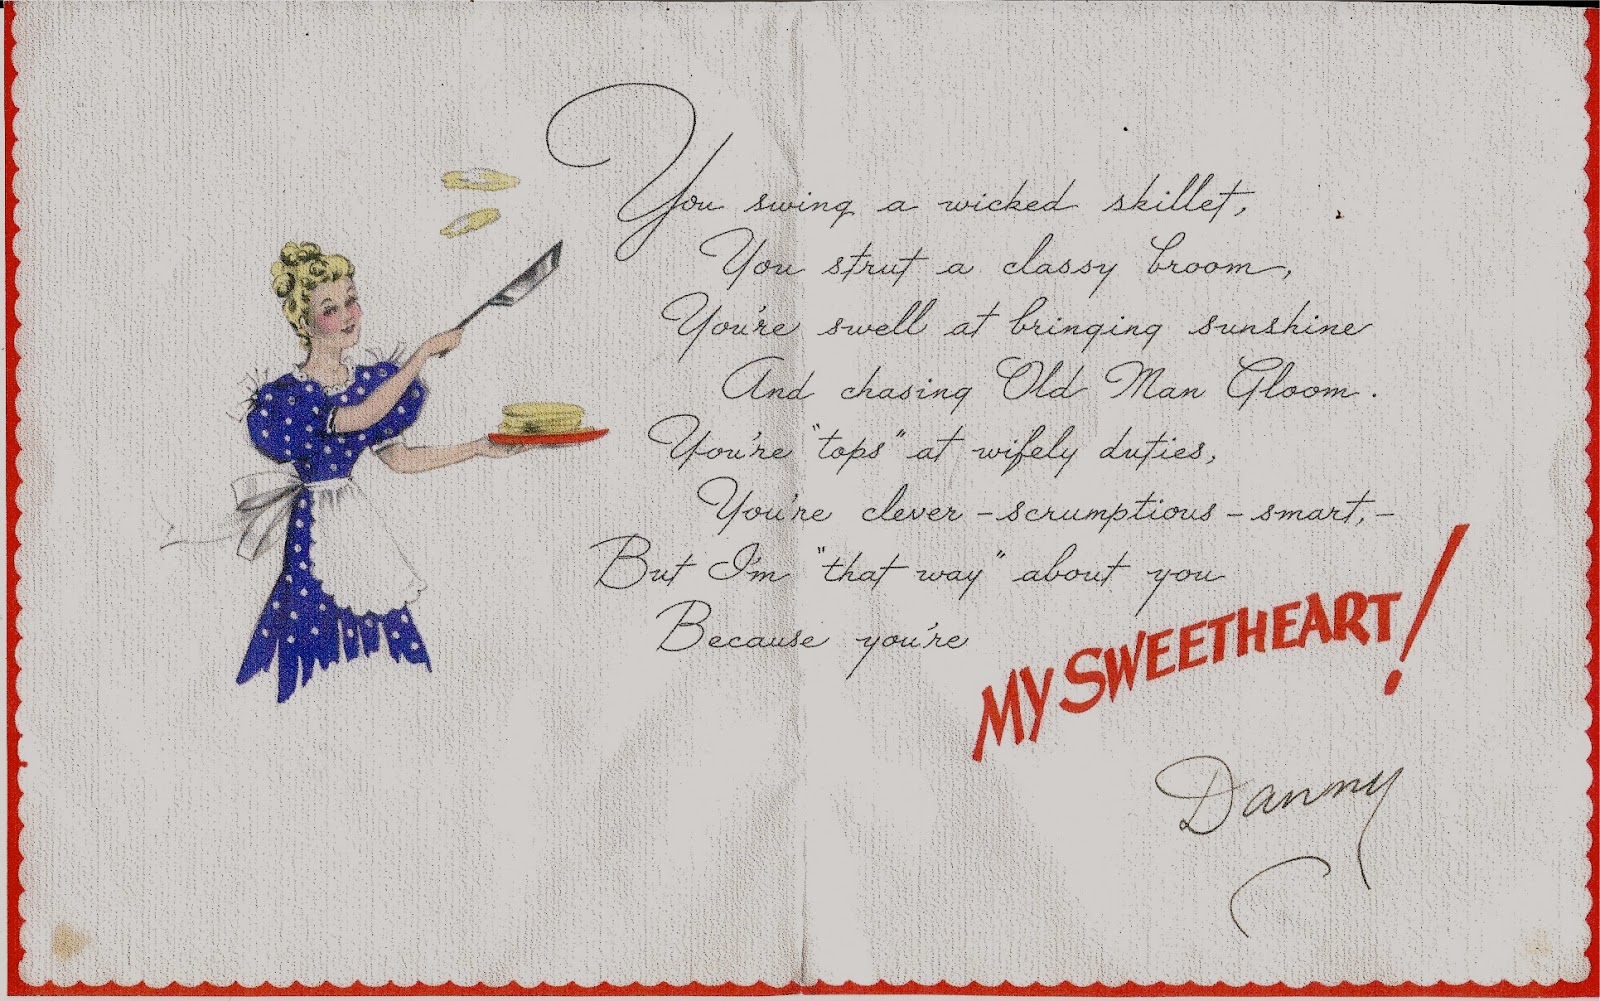 You swing a wicked skillet,
You strut a classy broom,
You're swell at bringing sunshine
And chasing Old Man Gloom.
You're "tops" at wifely duties,
You're clever - scrumptious - smart, -
But I'm "that way" about you
Because you're
MY SWEETHEART!
Danny